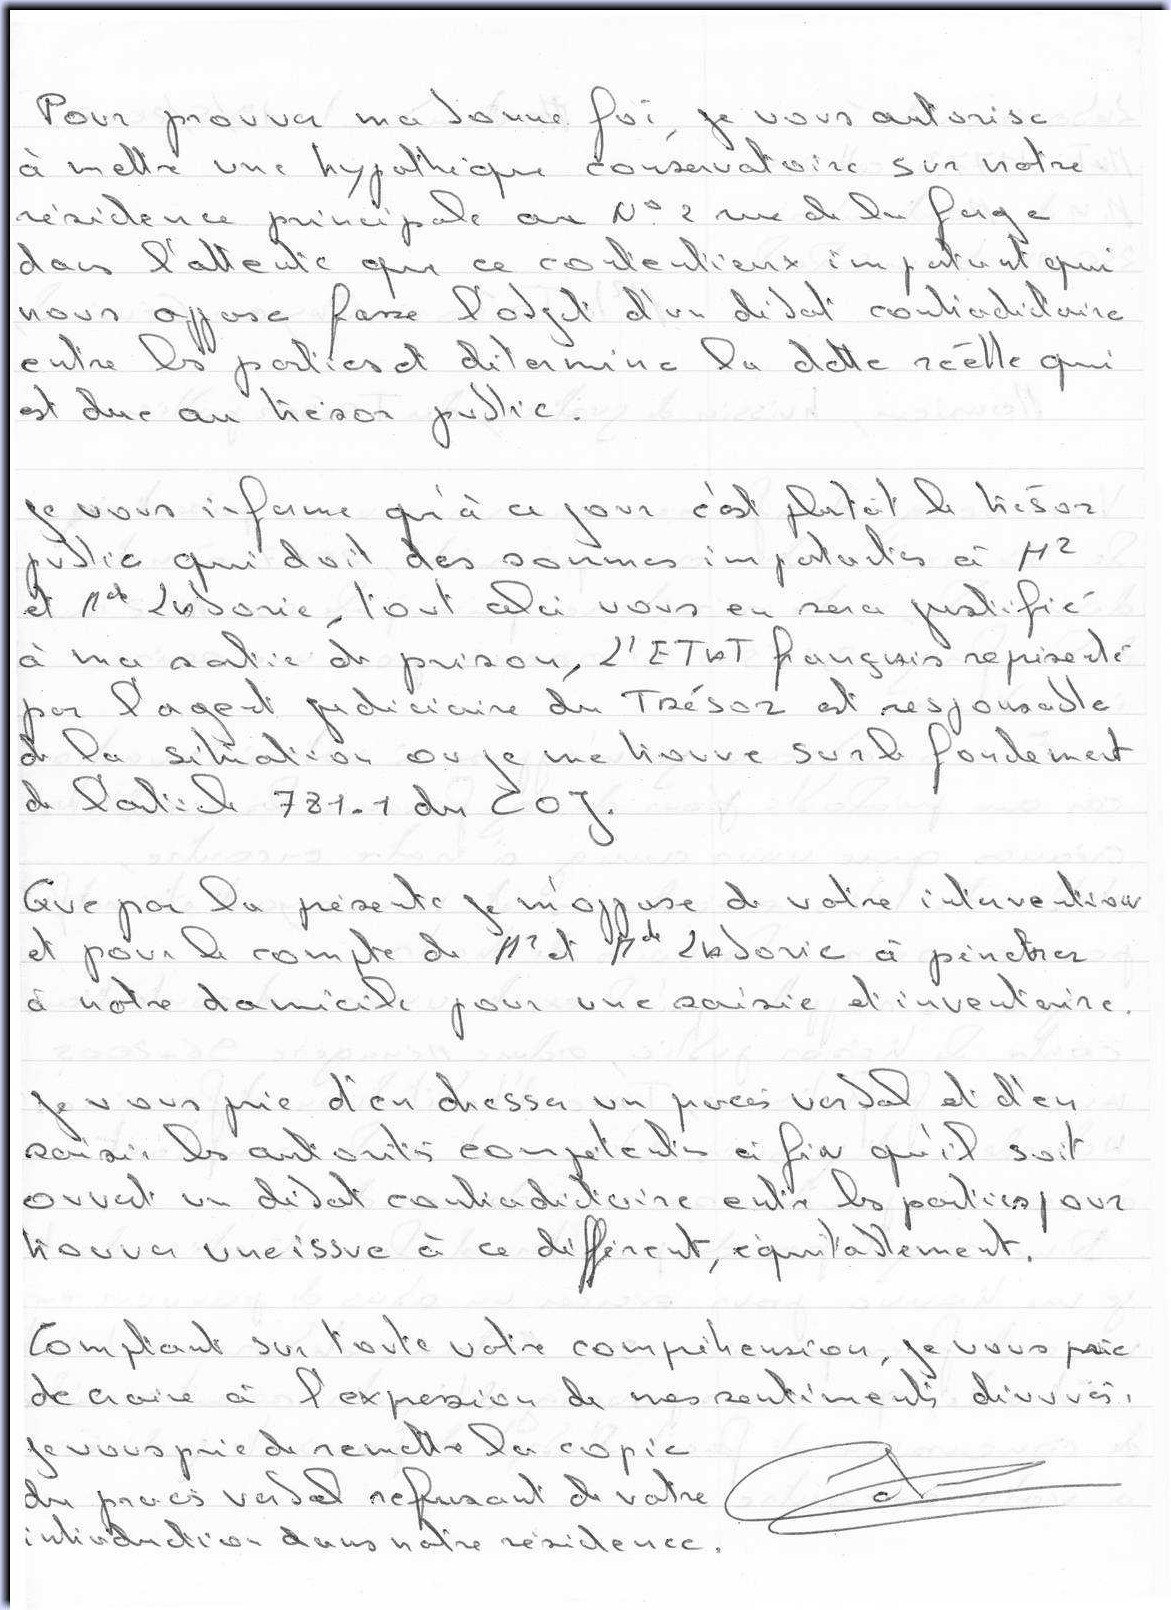 Pour prouver ma bonne foi, je vous autorise
à mettre une hypothèque conservatoire sur notre
résidence principale au N° 2 rue de la forge
dans l'attente que ce contentieux important qui
nous oppose fasse l'objet d'un débat contradictoire
entre les parties et détermine la dette réelle qui
est due au trésor public.
Je vous informe qu'à ce jour c'est plutôt le trésor
public qui doit des sommes importantes à Mr
et Mde LABorie, tout cela vous en sera justifié
à ma sortie de prison, L'ETAT français représenté
par l'agent judiciaire du TRésor est responsable
de la situation ou je me trouve sur le fondement
de l'article 781-1 du COJ.
Que par la présente je m'oppose de votre intervention
et pour le compte de Mr et Mde LABorie à pénétrer
à notre domicile pour une saisie et inventaire.
Je vous prie d'en dresser un procès verbal et d'en
saisir les autorités compétentes à fin qu'il soit
ouvert un débat contradictoire entre les parties pour
trouver une issue à ce différent, équitablement.
Comptant sur toute votre compréhension, je vous prie
de croire à l'expression de mes sentiments dévoués.
Je vous prie de remettre la copie
du procès verbal refusant de votre
introduction dans notre résidence.